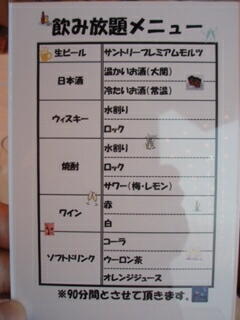 飲み放題メニュー
生ビール サントリープレミアムモルツ
日本酒 温かいお酒(大関)
冷たいお酒(常温)
ウィスキー 水割り
ロック
焼酎 水割り
ロック
サワー(梅・レモン)
ワイン 赤
白
ソフトドリンク コーラ
ウーロン茶
オレンジジュース
※90分間とさせて頂きます。